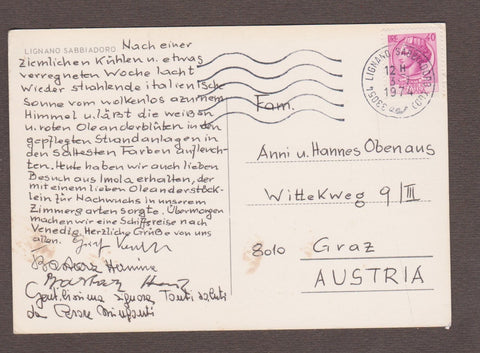 LIGNANO SABBIADORO
Nach einer
ziemlichen Kühlen u. etwas
verregneten Woche lacht
wieder strahlende italienische
Sonne vom wolkenlos azurnem
Himmel u. läßt die weißen
u. roten Oleanderblüten in den
gepflegten Strandanlagen in
den sattesten Farben aufleuch-
ten. Heute haben wir auch lieben
Besuch aus Imola erhalten, der
mit einem lieben Oleanderstöck-
lein für Nachwuchs in unserem
Zimmergarten sorgte. Übermorgen
machen wir eine Schiffsreise nach
Venedig. Herzliche Grüße von uns
allen.
Gentilissima signora Tanti saluti
da
LIRE 40
33054 LIGNANO SABBIADORO (UD)
12 H
1974
Fam.
Anni u. Hannes Obenaus
Wittekweg 9/III
8010 Graz
AUSTRIA